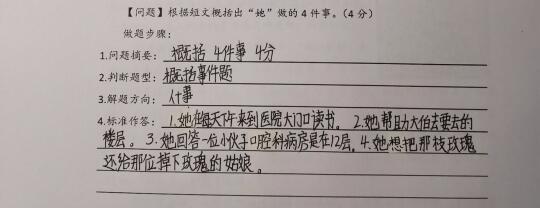 【问题】根据短文概括出“她”做的 4 件事。(4 分)
做题步骤:
1.问题摘要: 概括 4件事 4分
2.判断题型: 概括事件题
3.解题方向: 什事
4.标准作答: 1.她在每天下午来到医院大门口读书。 2.她帮助大伯去要去的
楼层。 3.她回答一位小伙子口腔科病房是在12层。4.她想把那枝玫瑰
还给那位掉下玫瑰的姑娘。